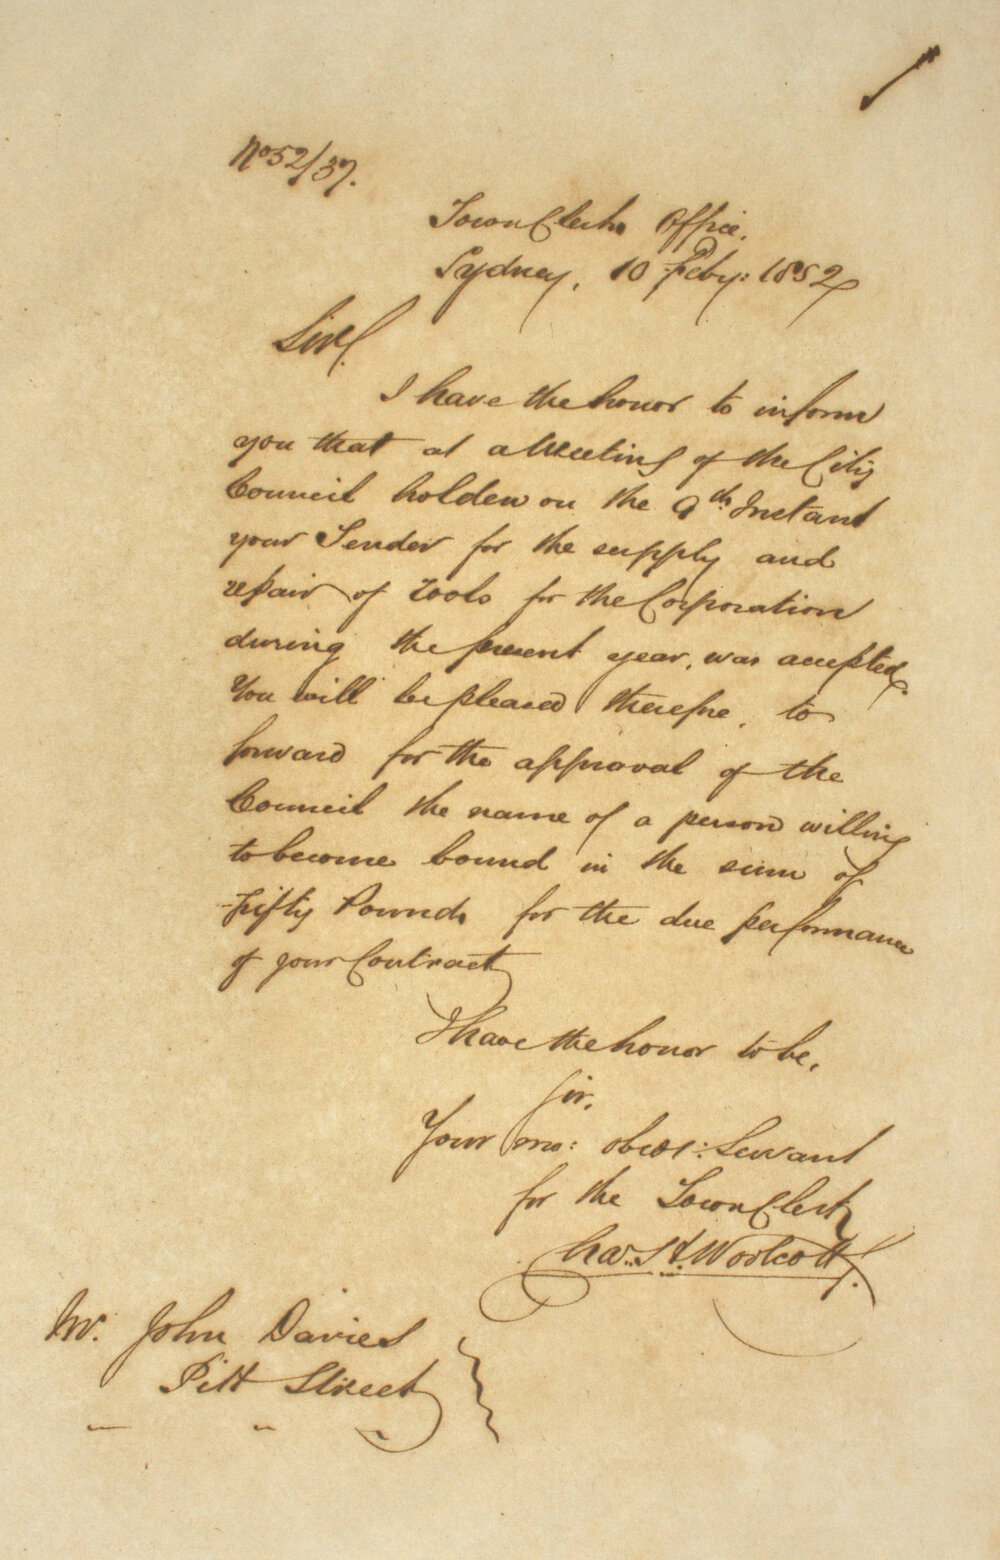 No 52/37.
Town Clerks Office.
Sydney, 10 Feby: 1852
Sir,
I have the honor to inform
you that at a Meeting of the City
Council holden on the 9th Instant
your Tender for the supply and
repair of Tools for the Corporation
during the present year, was accepted.
You will be pleased therefore, to
forward for the approval of the
Council the name of a person willing
to become bound in the sum of
Fifty Pounds for the due performance
of your Contract
I have the honor to be,
Sir,
Your mo: obedt: Servant
for the Town Clerk
Chas. H. Woolcott.
Mr. John Davies
Pitt Street